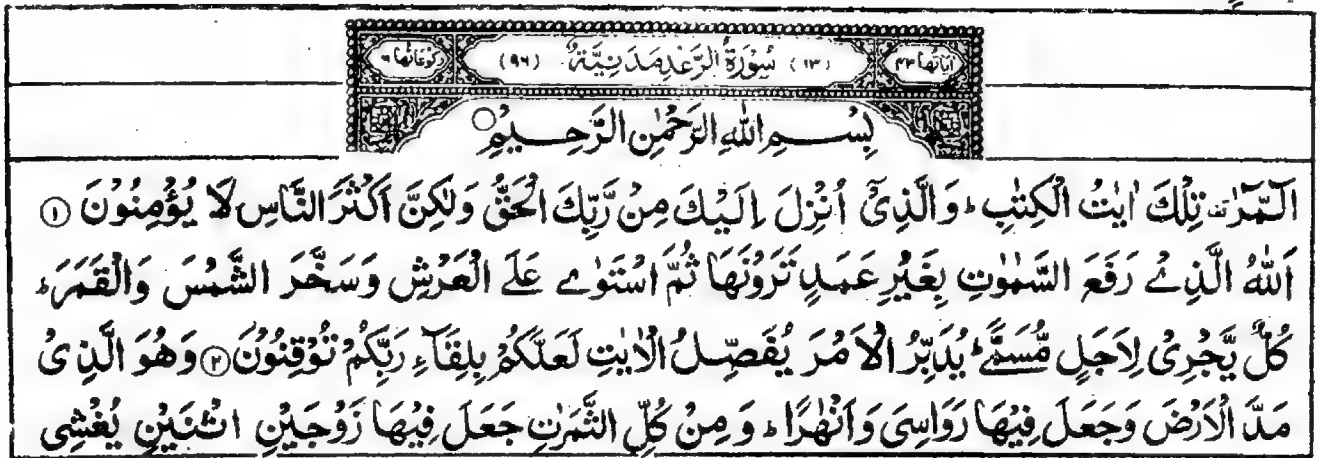 اٰيَاتُهَا ٤٣ (١٣) سُوْرَةُ الرَّعْدِ مَدَنِيَّةٌ (٩٦) رُكُوْعَاتُهَا ٦
بِسْمِ اللّٰهِ الرَّحْمٰنِ الرَّحِيْمِ
الٓمّٓرٰ تِلْكَ اٰيٰتُ الْكِتٰبِ ؕ وَالَّذِیْۤ اُنْزِلَ اِلَيْكَ مِنْ رَّبِّكَ الْحَقُّ وَلٰكِنَّ اَكْثَرَ النَّاسِ لَا يُؤْمِنُوْنَ ①
اَللّٰهُ الَّذِےْ رَفَعَ السَّمٰوٰتِ بِغَيْرِ عَمَدٍ تَرَوْنَهَا ثُمَّ اسْتَوٰے عَلَے الْعَرْشِ وَسَخَّرَ الشَّمْسَ وَالْقَمَرَ ؕ
كُلٌّ يَّجْرِیْ لِاَجَلٍ مُّسَمًّے ؕ يُدَبِّرُ الْاَمْرَ يُفَصِّلُ الْاٰيٰتِ لَعَلَّكُمْ بِلِقَآءِ رَبِّكُمْ تُوْقِنُوْنَ ② وَهُوَ الَّذِیْ
مَدَّ الْاَرْضَ وَجَعَلَ فِيْهَا رَوَاسِیَ وَاَنْهٰرًا ؕ وَمِنْ كُلِّ الثَّمَرٰتِ جَعَلَ فِيْهَا زَوْجَيْنِ اثْنَيْنِ يُغْشِی